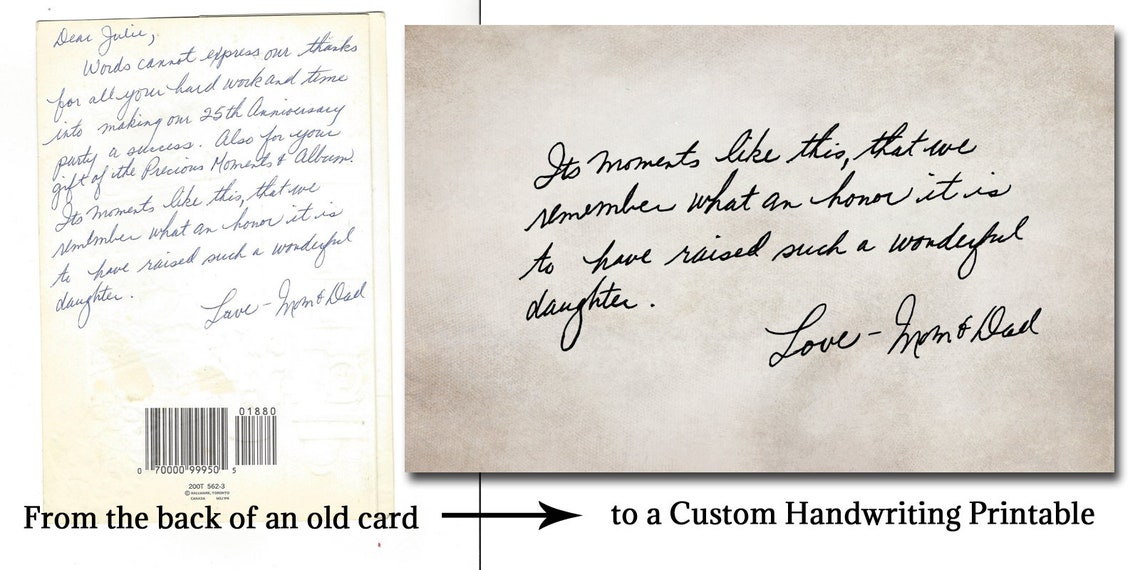 Dear Julie,
Words cannot express our thanks
for all your hard work and time
into making our 25th Anniversary
party a success. Also for your
gift of the Precious Moments & Album.
Its moments like this, that we
remember what an honor it is
to have raised such a wonderful
daughter.
Love - Mom & Dad
01880
0 70000 99950 5
200T 562-3
© HALLMARK, TORONTO
CANADA
From the back of an old card
Its moments like this, that we
remember what an honor it is
to have raised such a wonderful
daughter.
Love - Mom & Dad
to a Custom Handwriting Printable